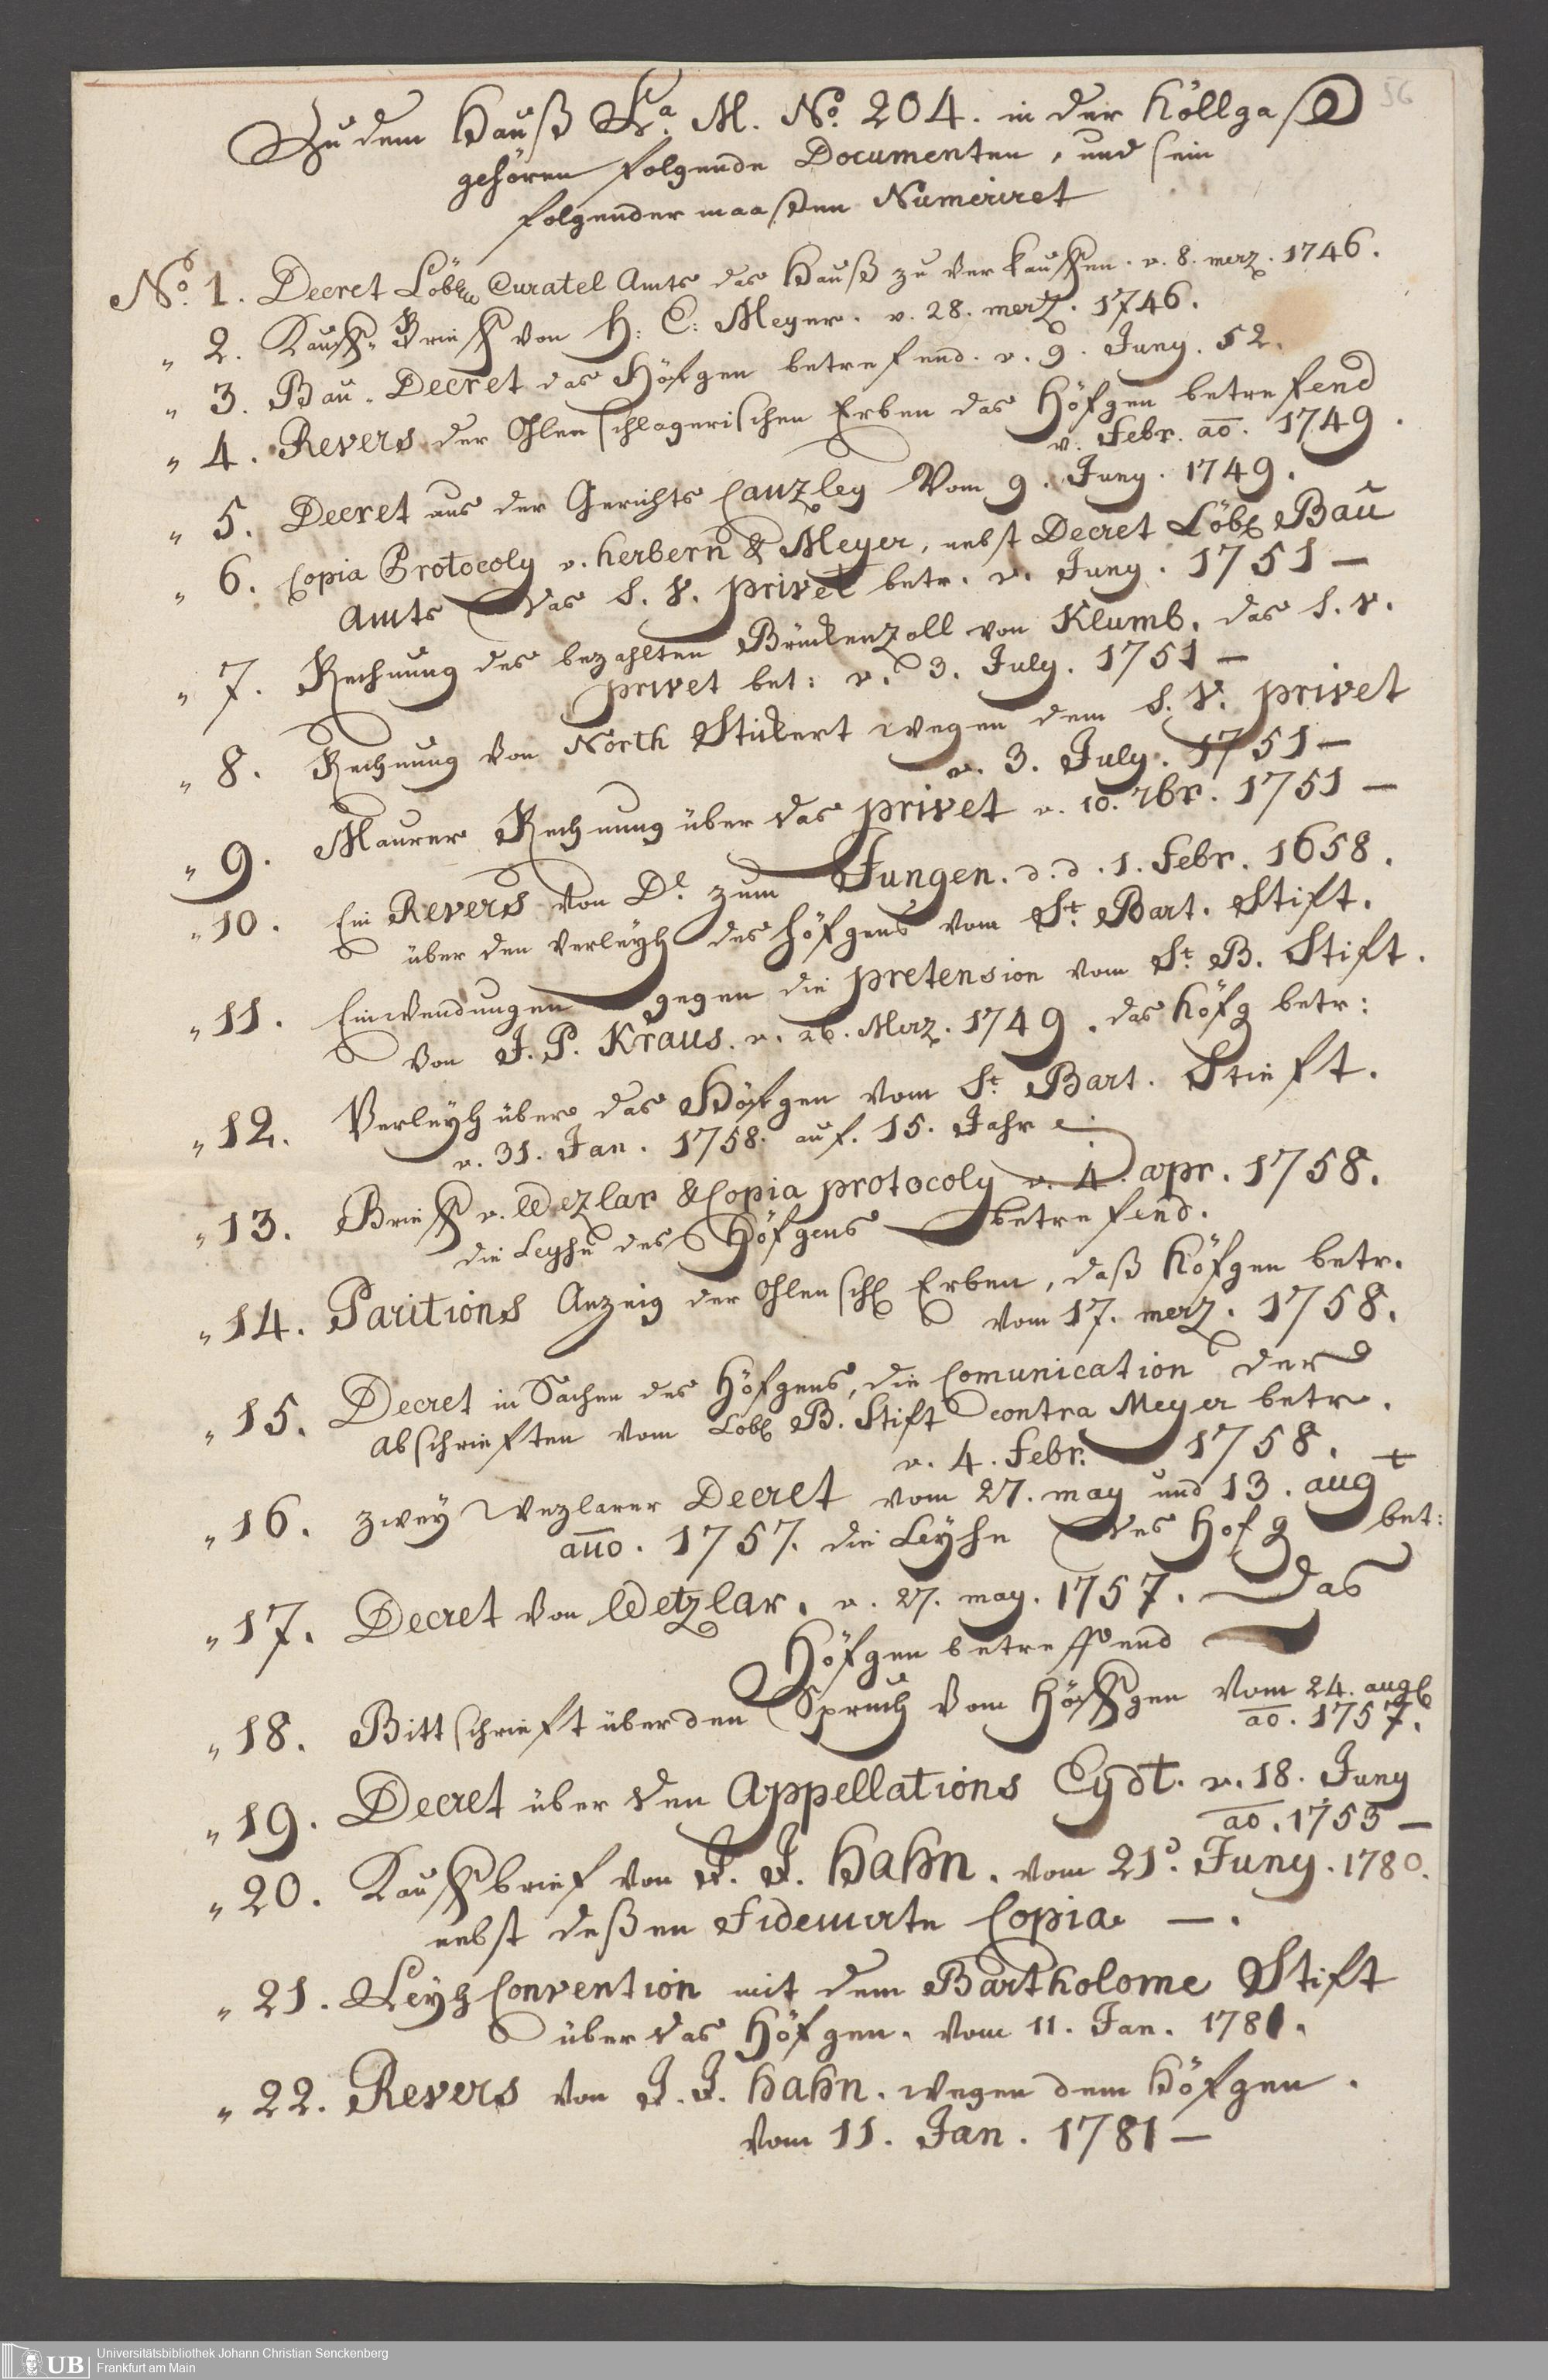 56
Zu dem Hauß Lra. M. No. 204. in der Höllgaß
gehören folgende Documenten, und sein
folgender maaßen Numeriret
No. 1. Decret Löbl. Curatel Amts das Hauß zu verkauffen. v. 8. merz. 1746.
" 2. Kauff-Brieff von H: C: Meyer. v. 28. merz. 1746.
" 3. Bau-Decret das Höfgen betrefend. v. 9. Juny. 52.
" 4. Revers der Ohlenschlagerischen Erben das Höfgen betrefend
v. Febr. ao. 1749.
" 5. Decret aus der Gerichts Canzley Vom 9. Juny. 1749.
" 6. Copia Protocoly v. Herbern & Meyer, nebst Decret Löbl Bau
Amts das S. V. privet betr. v. Juny. 1751 —
" 7. Rechnung des bezahlten Brückenzoll von Klumb. das S. v.
privet bet: v. 3. July. 1751 —
" 8. Rechnung von North Stickert wegen dem S. V. privet
v. 3. July. 1751 —
" 9. Maurer Rechnung über das privet v. 10. 7br. 1751 —
" 10. Ein Revers von D. zum Jungen. d. d. 1. Febr. 1658.
über den Verleyh des Höfgens vom St. Bart. Stift.
" 11. Einwendungen gegen die pretension vom St. B. Stift.
von J. P. Kraus. v. 26. Merz. 1749. das Höfg betr:
" 12. Verleyh über das Höfgen vom St. Bart. Stieft.
v. 31. Jan. 1758. auf. 15. Jahr
" 13. Brieff v. Wezlar & Copia protocoly v. 4. apr. 1758.
die Leyhe des Höfgens betrefend.
" 14. Paritions Anzeig der Ohlenschl Erben, daß Höfgen betr.
vom 17. merz. 1758.
" 15. Decret in Sachen des Höfgens, die Comunication der
Abschrieften vom Löbl B. Stift contra Meyer betr.
v. 4. Febr. 1758.
" 16. zwey Wezlarer Decret vom 27. may und 13. augt
anno. 1757. die Leyhe des Hofg bet:
" 17. Decret von Wetzlar. v. 27. may. 1757. Das
Höfgen betreffend
" 18. Bittschrieft über den Spruch vom Höffgen vom 24. aug
ao. 1757.
" 19. Decret über den Appellations Eydt. v. 18. Juny
ao. 1755 —
" 20. Kauffbrief von J. J. Hahn. vom 21. Juny. 1780.
nebst deßen Fidemirte Copia —.
" 21. Leyh Convention mit dem Bartholome Stift
über das Höfgen. vom 11. Jan. 1781.
" 22. Revers von J. J. Hahn. wegen dem Höfgen.
vom 11. Jan. 1781 —
UB
Universitätsbibliothek Johann Christian Senckenberg
Frankfurt am Main